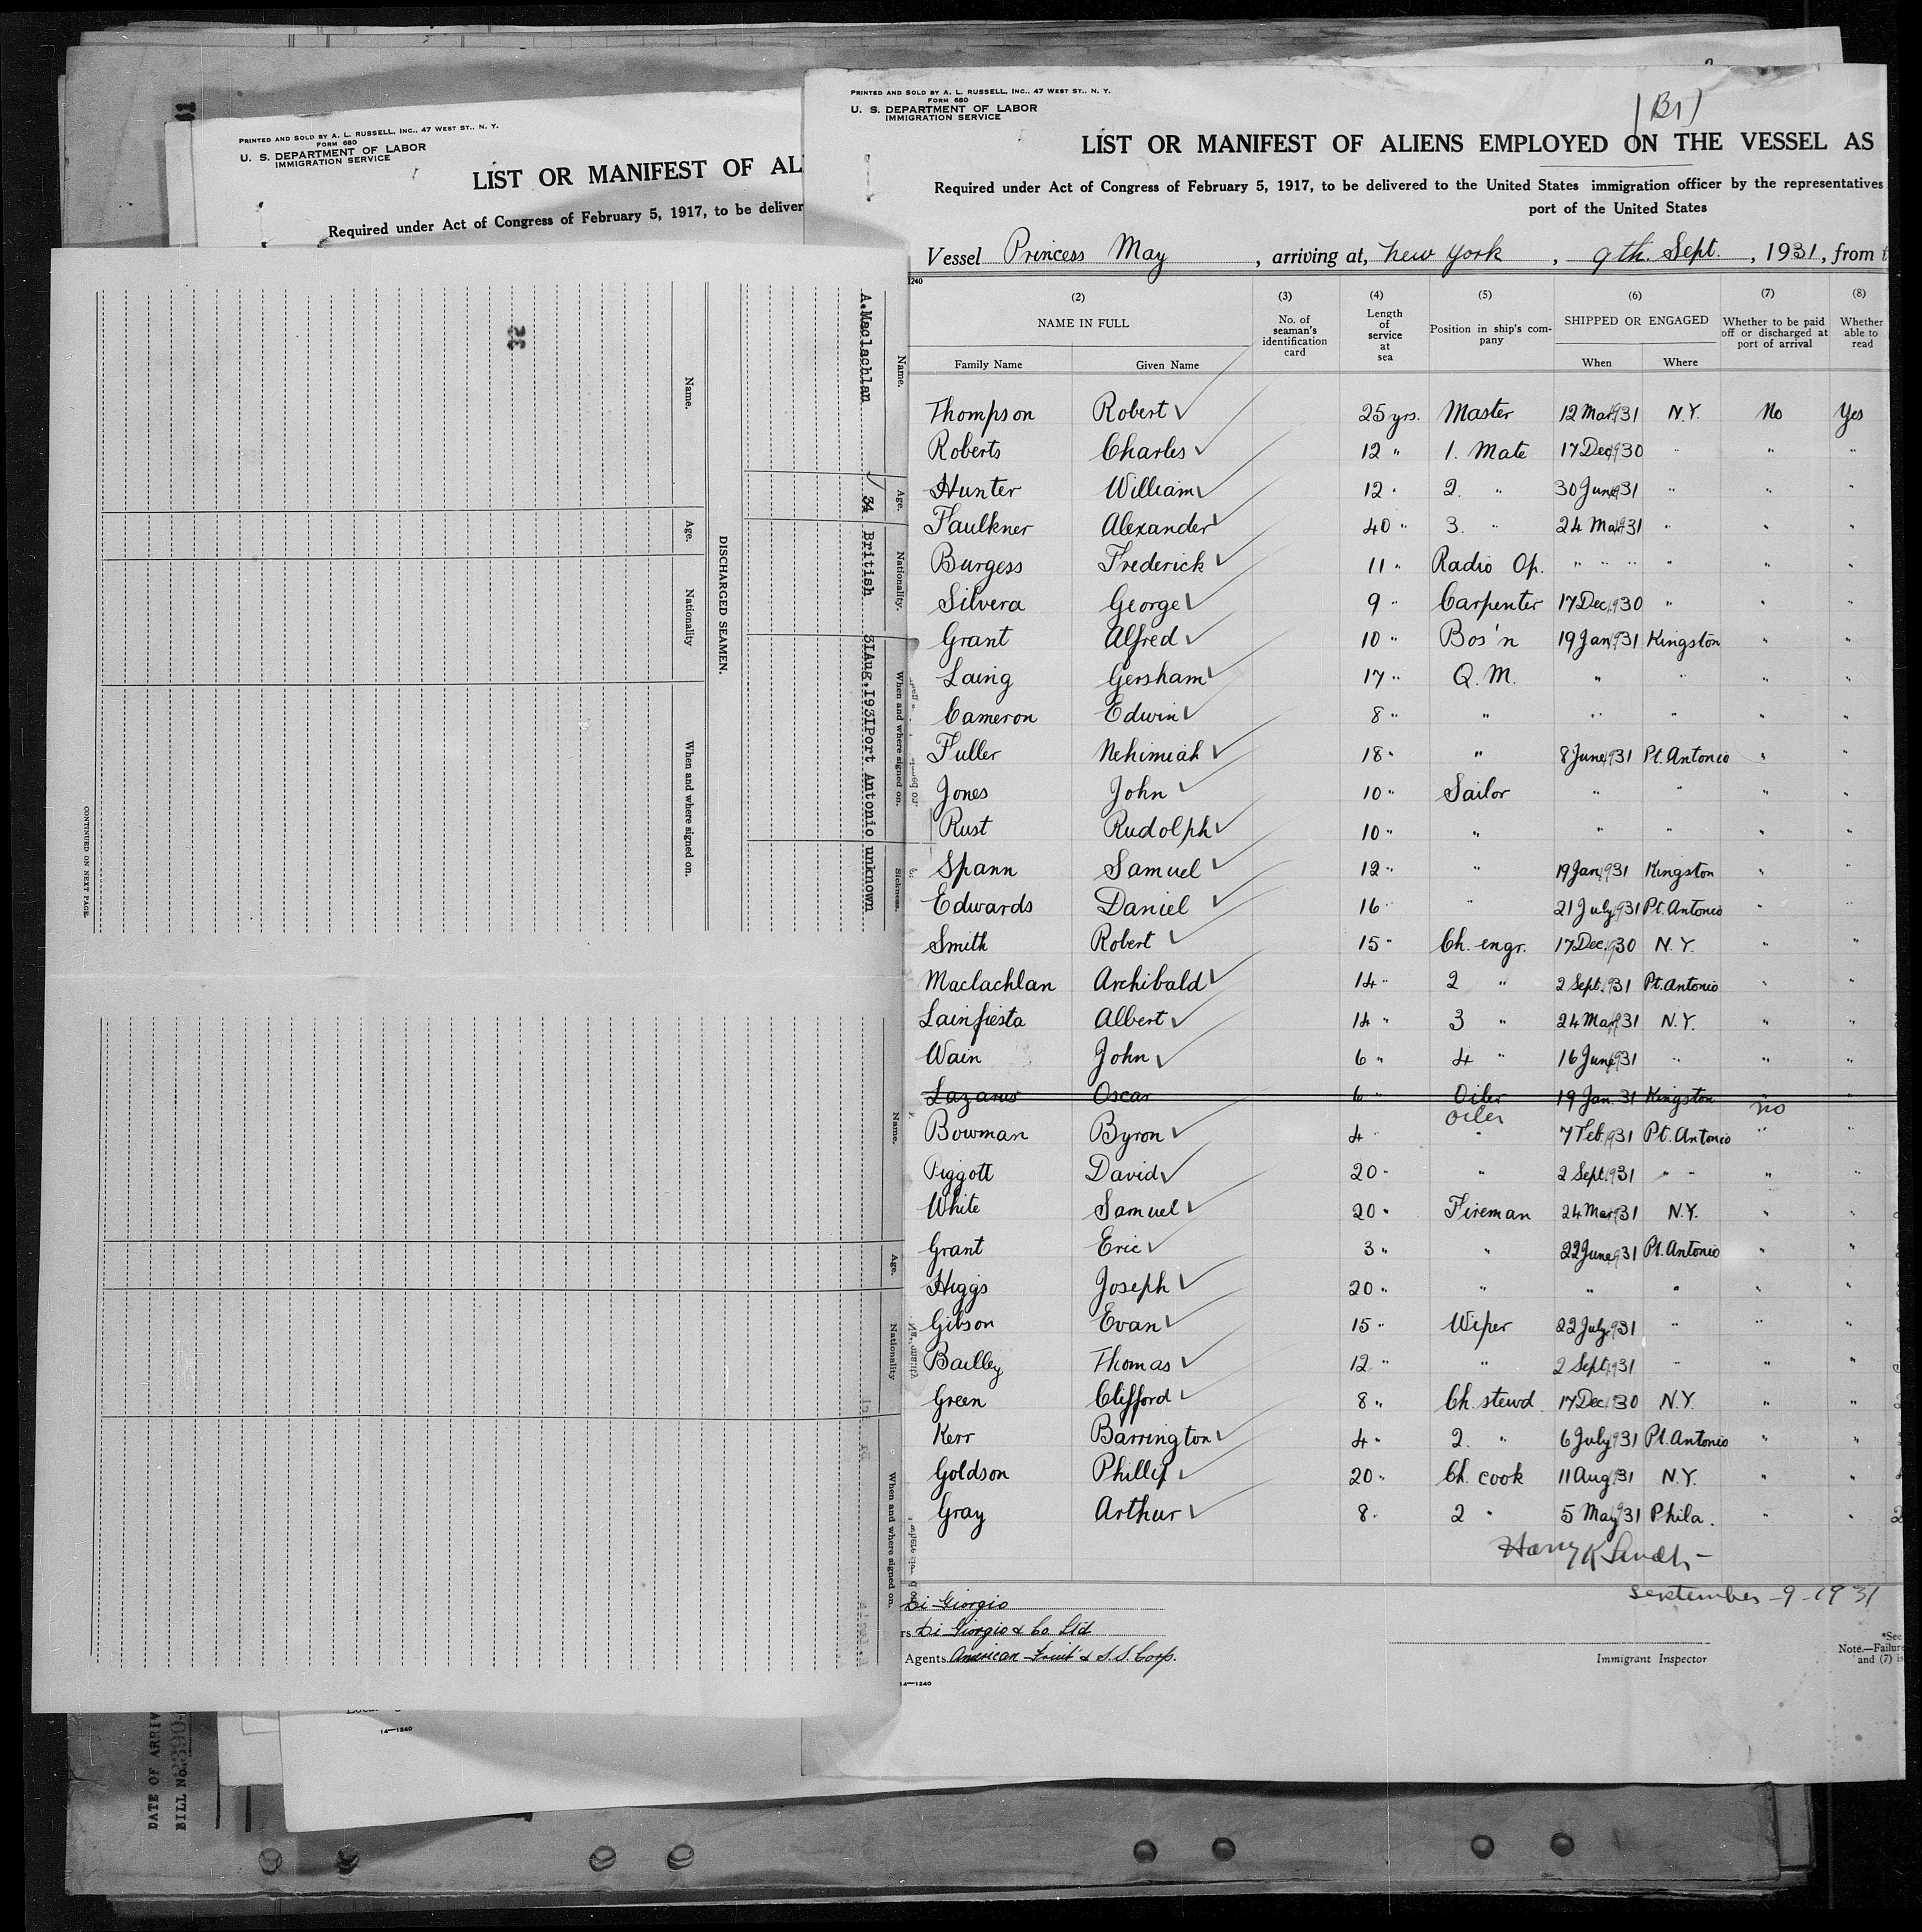 PRINTED AND SOLD BY A. L. RUSSELL, INC., 47 WEST ST., N. Y.
FORM 680
U. S. DEPARTMENT OF LABOR
IMMIGRATION SERVICE
LIST OR MANIFEST OF AL
Required under Act of Congress of February 5, 1917, to be deliver
PRINTED AND SOLD BY A. L. RUSSELL, INC., 47 WEST ST., N. Y.
FORM 680
U. S. DEPARTMENT OF LABOR
IMMIGRATION SERVICE
(B1)
LIST OR MANIFEST OF ALIENS EMPLOYED ON THE VESSEL AS
Required under Act of Congress of February 5, 1917, to be delivered to the United States immigration officer by the representatives
port of the United States
Vessel Princess May, arriving at, New York, 9th. Sept., 1931, from
1240
(2) (3) (4) (5) (6) (7) (8)
NAME IN FULL No. of seaman's identification card Length of service at sea Position in ship's company SHIPPED OR ENGAGED Whether to be paid off or discharged at port of arrival Whether able to read
Family Name Given Name When Where
Thompson Robert 25 yrs. Master 12 Mar 1931 N.Y. No Yes
Roberts Charles 12 " 1. Mate 17 Dec 1930 " " "
Hunter William 12 " 2. " 30 June 1931 " " "
Faulkner Alexander 40 " 3. " 24 Mar 1931 " " "
Burgess Frederick 11 " Radio Op. " " " " " "
Silvera George 9 " Carpenter 17 Dec. 1930 " " "
Grant Alfred 10 " Bos'n 19 Jan 1931 Kingston " "
Laing Gersham 17 " Q. M. " " " "
Cameron Edwin 8 " " " " " "
Fuller Nehimiah 18 " " 8 June 1931 Pt. Antonio " "
Jones John 10 " Sailor " " " "
Rust Rudolph 10 " " " " " "
Spann Samuel 12 " " 19 Jan 1931 Kingston " "
Edwards Daniel 16 " " 21 July 1931 Pt. Antonio " "
Smith Robert 15 " Ch. engr. 17 Dec. 1930 N.Y. " "
Maclachlan Archibald 14 " 2 " 2 Sept. 1931 Pt. Antonio " "
Lainfiesta Albert 14 " 3 " 24 Mar 1931 N.Y. " "
Wain John 6 " 4 " 16 June 1931 " " "
Lazarus Oscar 6 " Oiler 19 Jan. 31 Kingston " "
Bowman Byron 4 " oiler 7 Feb. 1931 Pt. Antonio no "
Piggott David 20 " " 2 Sept. 1931 " " " "
White Samuel 20 " Fireman 24 Mar 1931 N.Y. " "
Grant Eric 3 " " 22 June 1931 Pt. Antonio " "
Higgs Joseph 20 " " " " " "
Gibson Evan 15 " Wiper 22 July 1931 " " "
Bailley Thomas 12 " " 2 Sept. 1931 " " "
Green Clifford 8 " Ch. stewd. 17 Dec. 1930 N.Y. " "
Kerr Barrington 4 " 2. " 6 July 1931 Pt. Antonio " "
Goldson Phillip 20 " Ch. cook 11 Aug. 1931 N.Y. " "
Gray Arthur 8 " 2 " 5 May 1931 Phila. " "
September -9-1931
Di Giorgio
rs Di Giorgio & Co. Ltd
Agents American Fruit & S.S. Corp.
Immigrant Inspector
*See
Note.—Failure
and (7) is
14—1240
Name. Age. Nationality. When and where signed on. Sickness.
A.Maclachlan 34 British 31Aug.1931Port Antonio unknown
DISCHARGED SEAMEN.
Name. Age. Nationality When and where signed on.
32
CONTINUED ON NEXT PAGE.
Name. Age. Nationality When and where signed on.
14—1240
DATE OF ARRIV
BILL No.